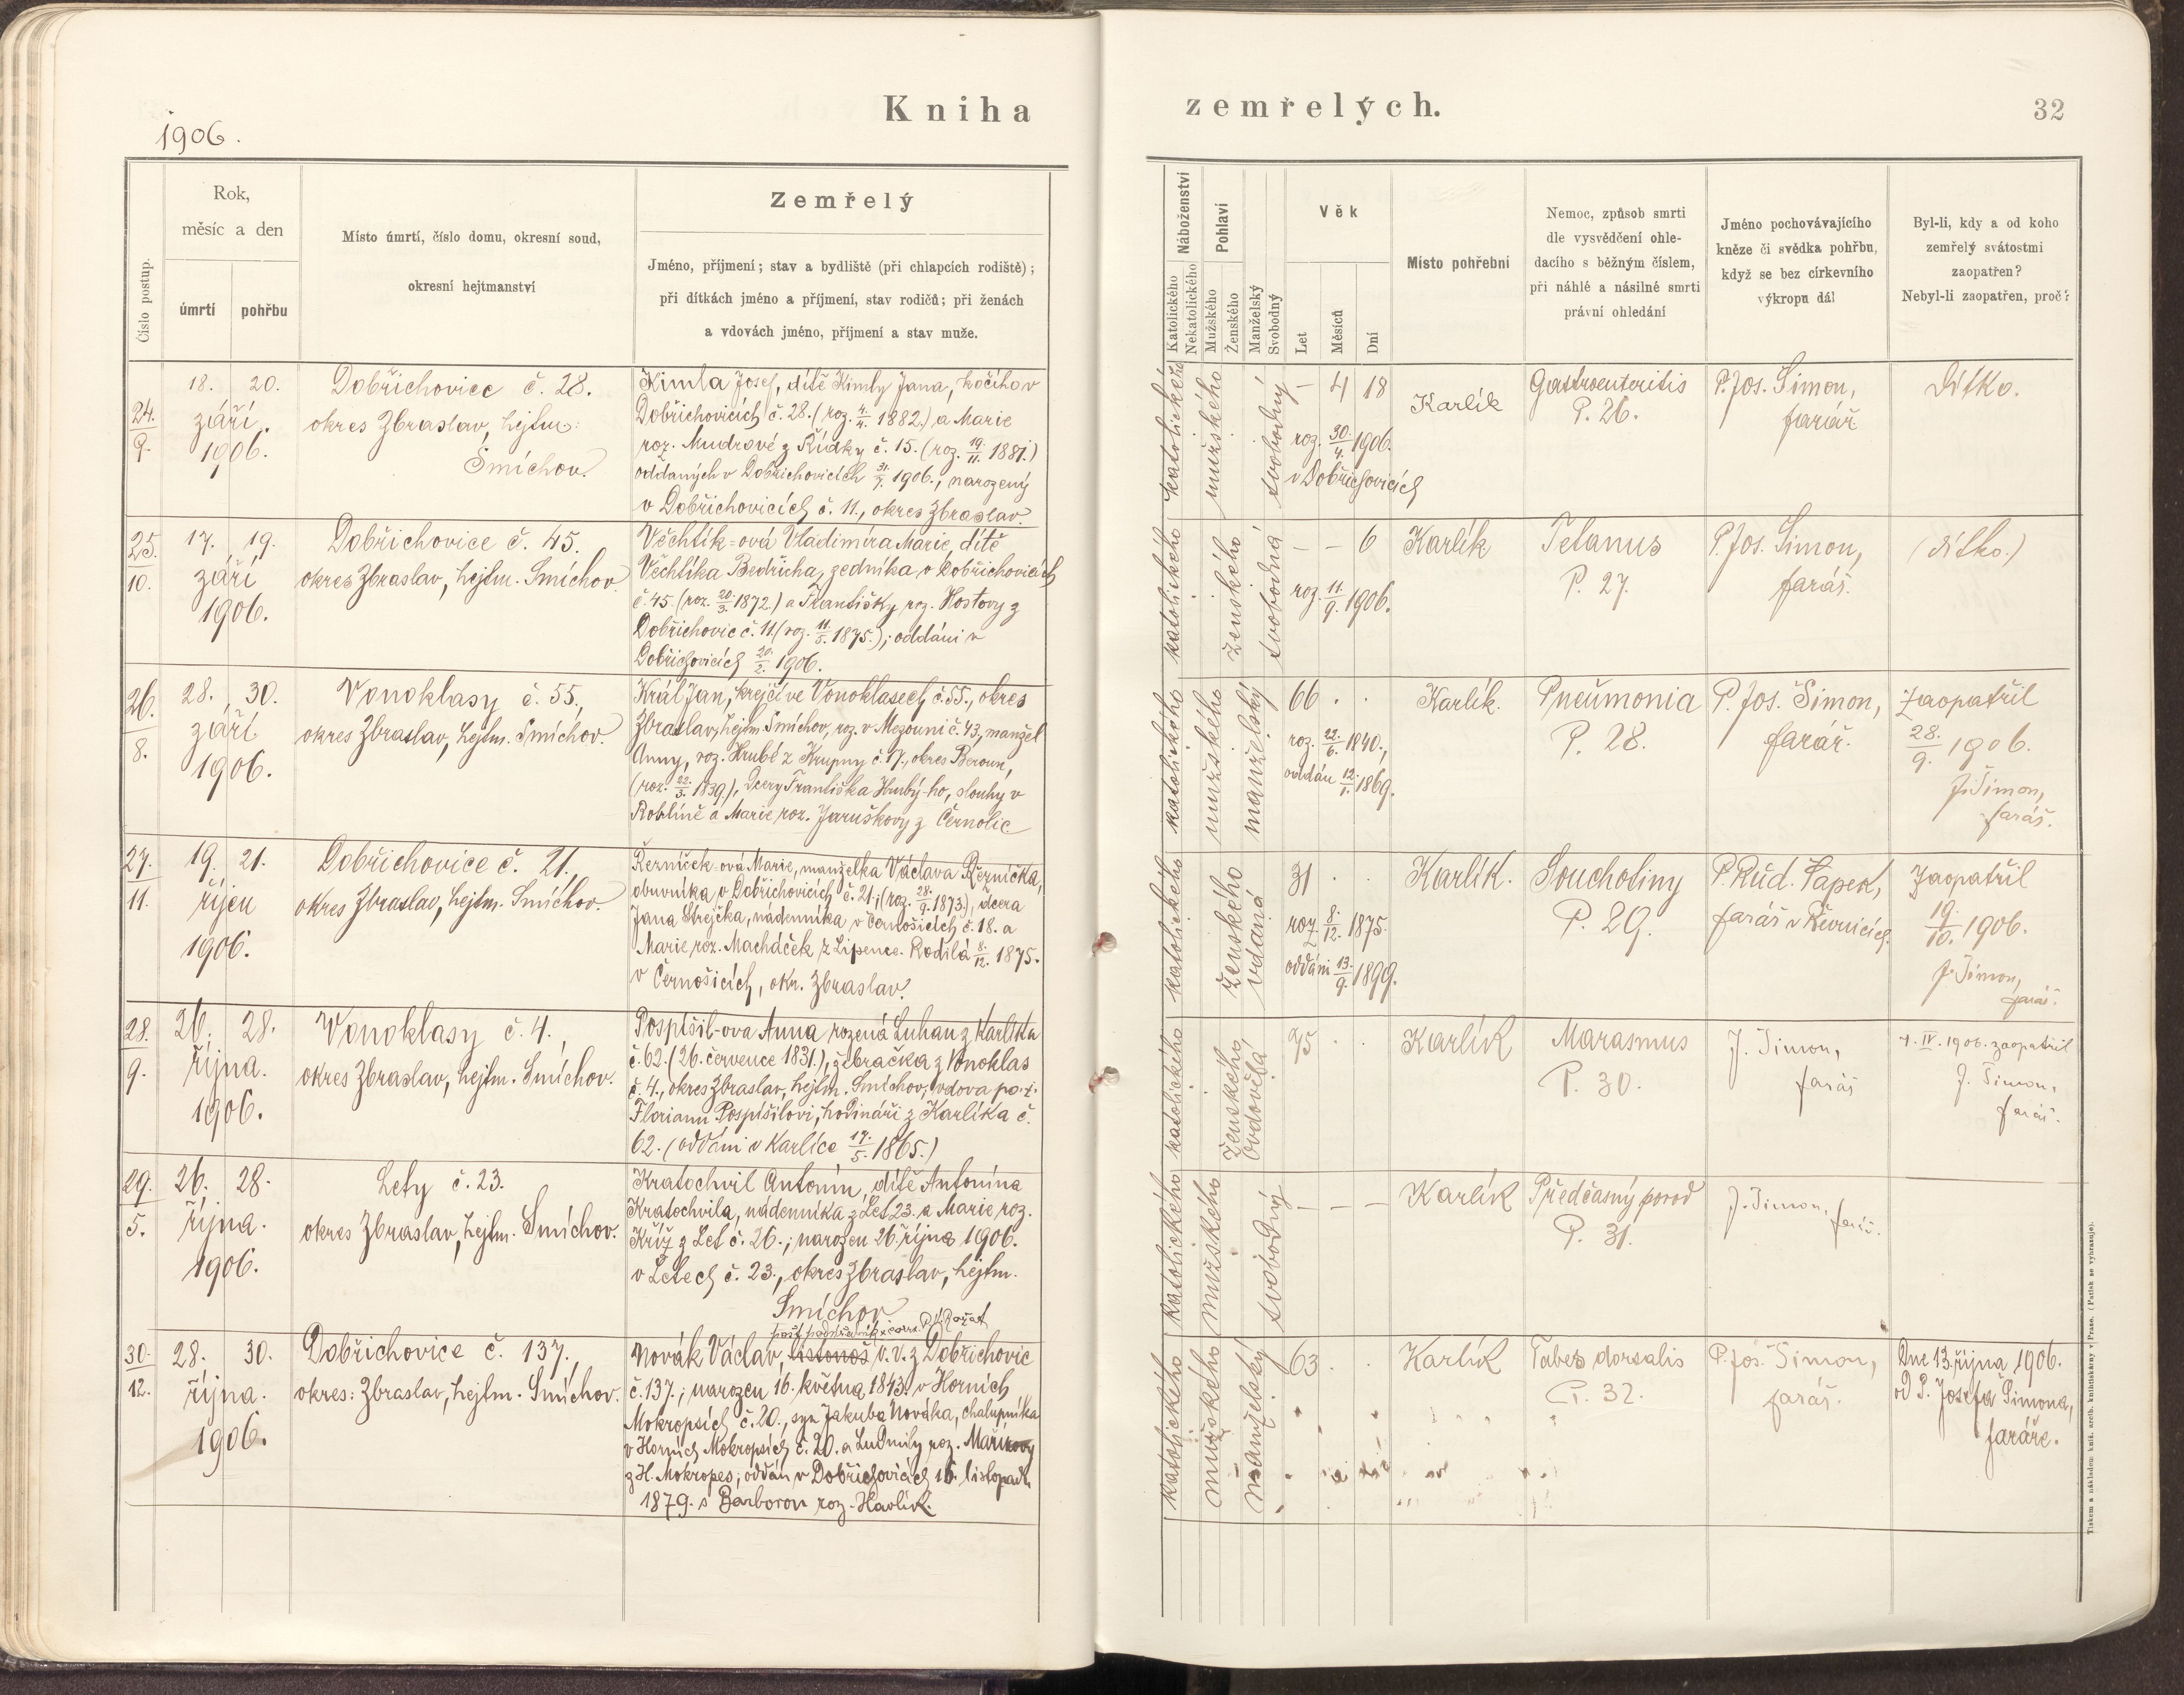 Kniha zemřelých.
32
1906.
Číslo postup.
Rok,
měsíc a den
úmrtí
pohřbu
Místo úmrtí, číslo domu, okresní soud,
okresní hejtmanství
Zemřelý
Jméno, příjmení; stav a bydliště (při chlapcích rodiště);
při dítkách jméno a příjmení, stav rodičů; při ženách
a vdovách jméno, příjmení a stav muže.
Náboženství
Katolického
Nekatolického
Pohlaví
Mužského
Ženského
Manželský
Svobodný
Věk
Let
Měsíců
Dní
Místo pohřební
Nemoc, způsob smrti
dle vysvědčení ohle-
dacího s běžným číslem,
při náhlé a násilné smrti
právní ohledání
Jméno pochovávajícího
kněze či svědka pohřbu,
když se bez církevního
výkropu dál
Byl-li, kdy a od koho
zemřelý svátostmi
zaopatřen?
Nebyl-li zaopatřen, proč?
24.
9.
18. 20.
září.
1906.
Dobřichovice č. 28.
okres Zbraslav, hejtm:
Smíchov.
Kimla Josef, dítě Kimly Jana, kočího v
Dobřichovicích č. 28. (roz. 4./4. 1882.) a Marie
roz. Mudrové z Řídky č. 15. (roz. 19./11. 1881.)
oddaných v Dobřichovicích 31./7. 1906., narozený
v Dobřichovicích č. 11., okres Zbraslav.
katolického
mužského
svobodný
– 4 18
roz. 30./4. 1906.
v Dobřichovicích
Karlík
Gastroenteritis
P. 26.
P. Jos. Šimon,
farář
dítko.
25.
10.
17. 19.
září
1906.
Dobřichovice č. 45.
okres Zbraslav, hejtm. Smíchov.
Věchtík=ová Vladimíra Marie, dítě
Věchtíka Bedřicha, zedníka v Dobřichovicích
č. 45. (roz. 20./3. 1872.) a Františky, roz. Hostovy z
Dobřichovic č. 11 (roz. 11./5. 1875.); oddáni v
Dobřichovicích 20./2. 1906.
katolického
ženského
svobodná
– – 6
roz. 11./9. 1906.
Karlík
Tetanus
P. 27.
P. Jos. Šimon,
farář.
(dítko.)
26.
8.
28. 30.
září
1906.
Vonoklasy č. 55.,
okres Zbraslav, hejtm. Smíchov.
Král Jan, krejčí ve Vonoklasech č. 55., okres
Zbraslav, hejtm Smíchov, roz. v Mezouni č. 43., manžel
Anny, roz. Hrubé z Krupny č. 17., okres Beroun,
(roz. 22./3. 1839), dcery Františka Hrubý-ho, slouhy v
Roblíně a Marie roz. Jaruškovy z Černolic
katolického
mužského
manželský
66 . .
roz. 22./6. 1840.,
oddán 12./1. 1869.
Karlík.
Pneumonia
P. 28.
P. Jos. Šimon,
farář.
Zaopatřil
28./9. 1906.
J. Šimon,
farář.
27.
11.
19. 21.
říjen
1906.
Dobřichovice č. 21.,
okres Zbraslav, hejtm. Smíchov.
Řezníček-ová Marie, manželka Václava Řezníčka,
obuvníka v Dobřichovicích č. 21; (roz. 28./9. 1873), dcera
Jana Strejčka, nádenníka v Černošicích č. 18. a
Marie roz. Macháček z Lipence. Rodilá 8./12. 1875.
v Černošicích, okr. Zbraslav.
katolického
ženského
vdaná
31 . .
roz. 8./12. 1875.
oddáni 13./9. 1899.
Karlík.
Souchotiny
P. 29.
P. Rud. Čapek,
farář v Řevnicích.
Zaopatřil
19./10. 1906.
J. Šimon,
farář.
28.
9.
26. 28.
října.
1906.
Vonoklasy č. 4.,
okres Zbraslav, hejtm. Smíchov.
Pospíšil-ova Anna rozená Luhan z Karlíka
č. 62. (26. července 1831.), žebračka z Vonoklas
č. 4., okres Zbraslav, hejtm. Smíchov, vdova po †
Florianu Pospíšilovi, hodináři z Karlíka č.
62. (oddáni v Karlíce 17./5. 1865.)
katolického
ženského
ovdovělá
75 . .
Karlík
Marasmus
P. 30.
J. Šimon,
farář
4. IV. 1906. zaopatřil
J. Šimon,
farář.
29.
5.
26. 28.
října.
1906.
Lety č. 23.
okres Zbraslav, hejtm. Smíchov.
Kratochvil Antonín, dítě Antonína
Kratochvila, nádenníka z Let 23. a Marie roz.
Kříž z Let č. 26.; narozen 26. října 1906.
v Letech č. 23., okres Zbraslav, hejtm.
Smíchov
katolického
mužského
svobodný
– – –
Karlík
Předčasný porod
P. 31.
J. Šimon, farář.
30.
12.
28. 30.
října.
1906.
Dobřichovice č. 137.,
okres: Zbraslav, hejtm. Smíchov.
Novák Václav, listonoš v. v. z Dobřichovic
č. 137.; narozen 16. května 1843. v Horních
Mokropsích č. 20., syn Jakuba Nováka, chalupníka
v Horních Mokropsích č. 20. a Ludmily roz. Maříkovy
z H. Mokropes; oddán v Dobřichovicích 16. listopadu
1879. s Barborou roz. Havlík.
katolického
mužského
manželský
63 . .
Karlík
Tabes dorsalis
P. 32.
P. Jos. Šimon,
farář.
Dne 13. října 1906.
od P. Josefa Šimona,
faráře.
Tiskem a nákladem kníž. arcib. knihtiskárny v Praze. (Patisk se vyhrazuje).